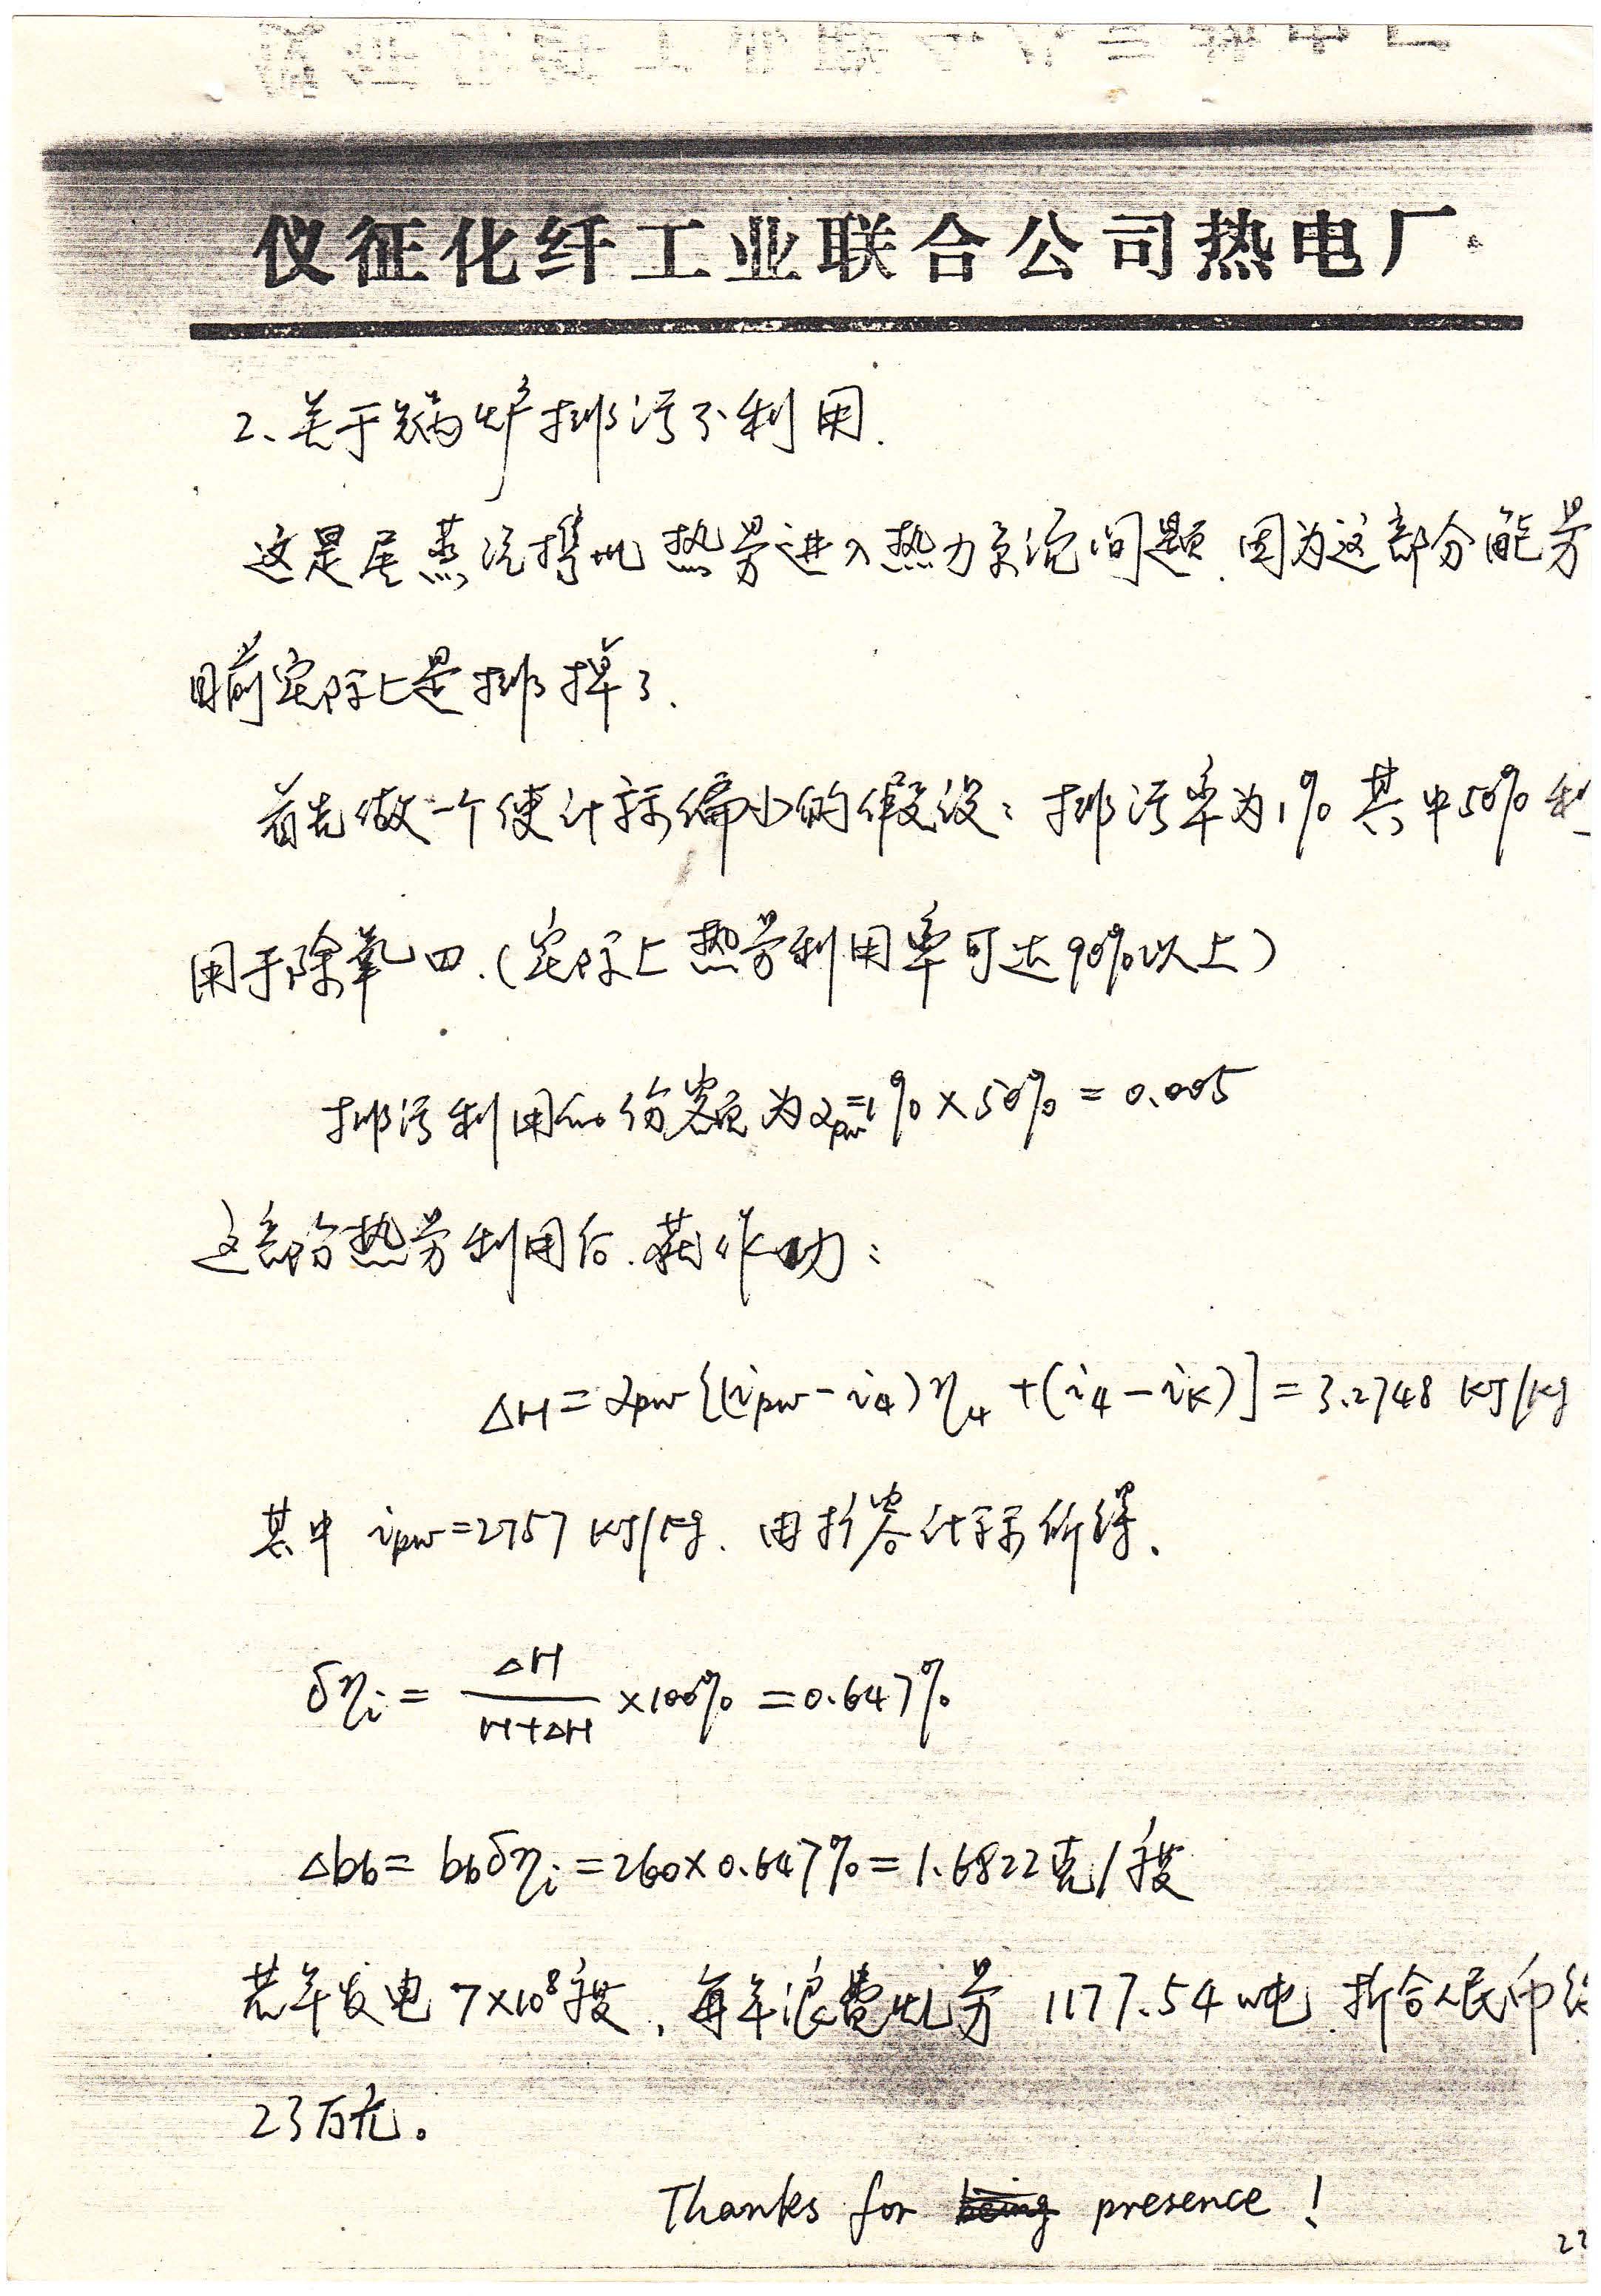 仪征化纤工业联合公司热电厂
2、关于锅炉排污不利用.
这是属蒸汽携热量进入热力系统问题.因为这部分能量
目前实际上是排掉了.
首先做一个使计算偏小的假设:排污率为1% 其中50%利
用于除氧四.(实际上热量利用率可达90%以上)
排污利用的份额为αpw=1%×50%=0.005
这部分热量利用后.获作功:
ΔH=αpw{(ipw-i4)η4+(i4-iK)]=3.2748 KJ/Kg
其中 ipw=2757 KJ/Kg. 由扩容计算所得.
δηi=ΔH/(H+ΔH)×100%=0.647%
Δbb=bbδηi=260×0.647%=1.6822克/度
若年发电7×10⁸度,每年浪费能量 1177.54吨.折合人民币约
23万元。
Thanks for being presence !